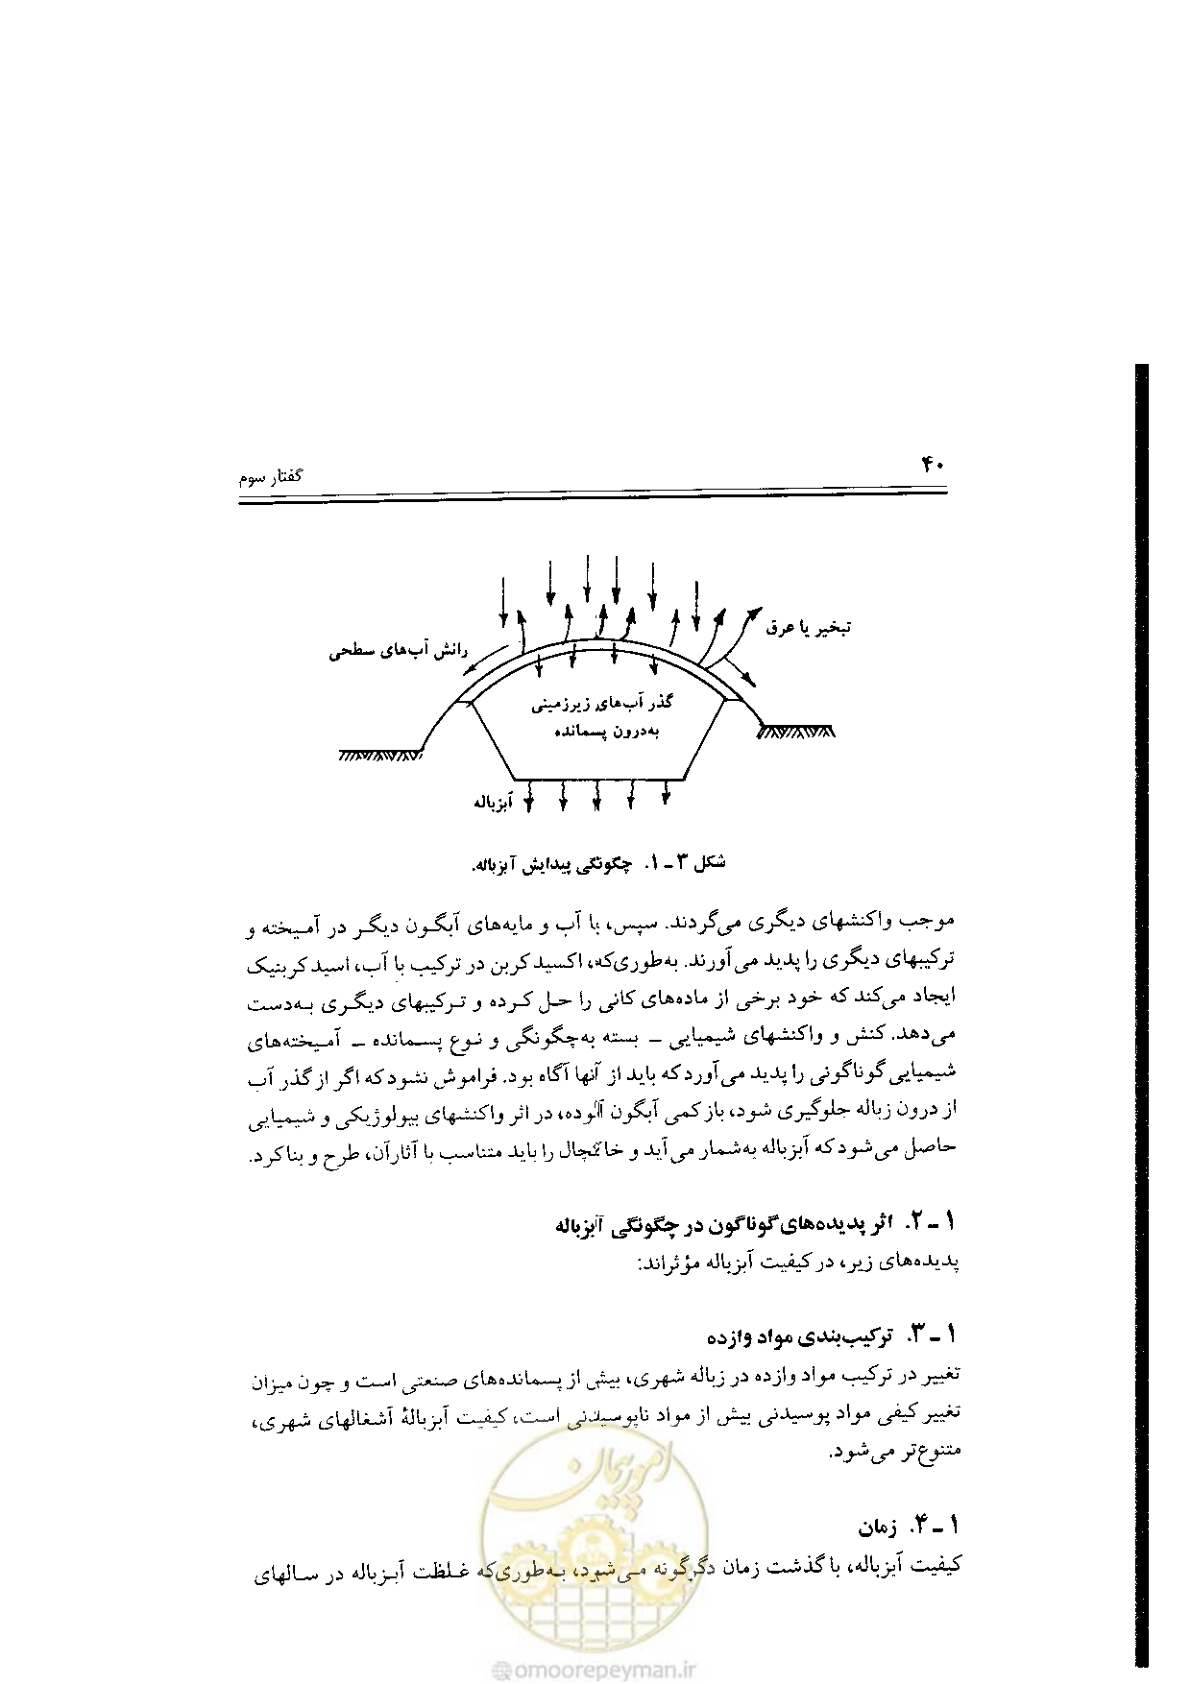 ۴۰
گفتار سوم
تبخیر یا عرق
رانش آب‌های سطحی
گذر آب‌های زیرزمینی
به‌درون پسمانده
آبزباله
شکل ۳ ـ ۱. چگونگی پیدایش آبزباله.
موجب واکنشهای دیگری می‌گردند. سپس، با آب و مایه‌های آبگون دیگر در آمیخته و
ترکیبهای دیگری را پدید می‌آورند. به‌طوری‌که، اکسید کربن در ترکیب با آب، اسید کربنیک
ایجاد می‌کند که خود برخی از ماده‌های کانی را حل کرده و ترکیبهای دیگری به‌دست
می‌دهد. کنش و واکنشهای شیمیایی ـ بسته به‌چگونگی و نوع پسمانده ـ آمیخته‌های
شیمیایی گوناگونی را پدید می‌آورد که باید از آنها آگاه بود. فراموش نشود که اگر از گذر آب
از درون زباله جلوگیری شود، باز کمی آبگون آلوده، در اثر واکنشهای بیولوژیکی و شیمیایی
حاصل می‌شود که آبزباله به‌شمار می‌آید و خاکچال را باید متناسب با آثارآن، طرح و بنا کرد.
۱ ـ ۲. اثر پدیده‌های گوناگون در چگونگی آبزباله
پدیده‌های زیر، در کیفیت آبزباله مؤثراند:
۱ ـ ۳. ترکیب‌بندی مواد وازده
تغییر در ترکیب مواد وازده در زباله شهری، بیش از پسمانده‌های صنعتی است و چون میزان
تغییر کیفی مواد پوسیدنی بیش از مواد ناپوسیدنی است، کیفیت آبزبالهٔ آشغالهای شهری،
متنوع‌تر می‌شود.
۱ ـ ۴. زمان
کیفیت آبزباله، با گذشت زمان دگرگونه می‌شود، به‌طوری‌که غلظت آبزباله در سالهای
امور پیمان
@omoorepeyman.ir